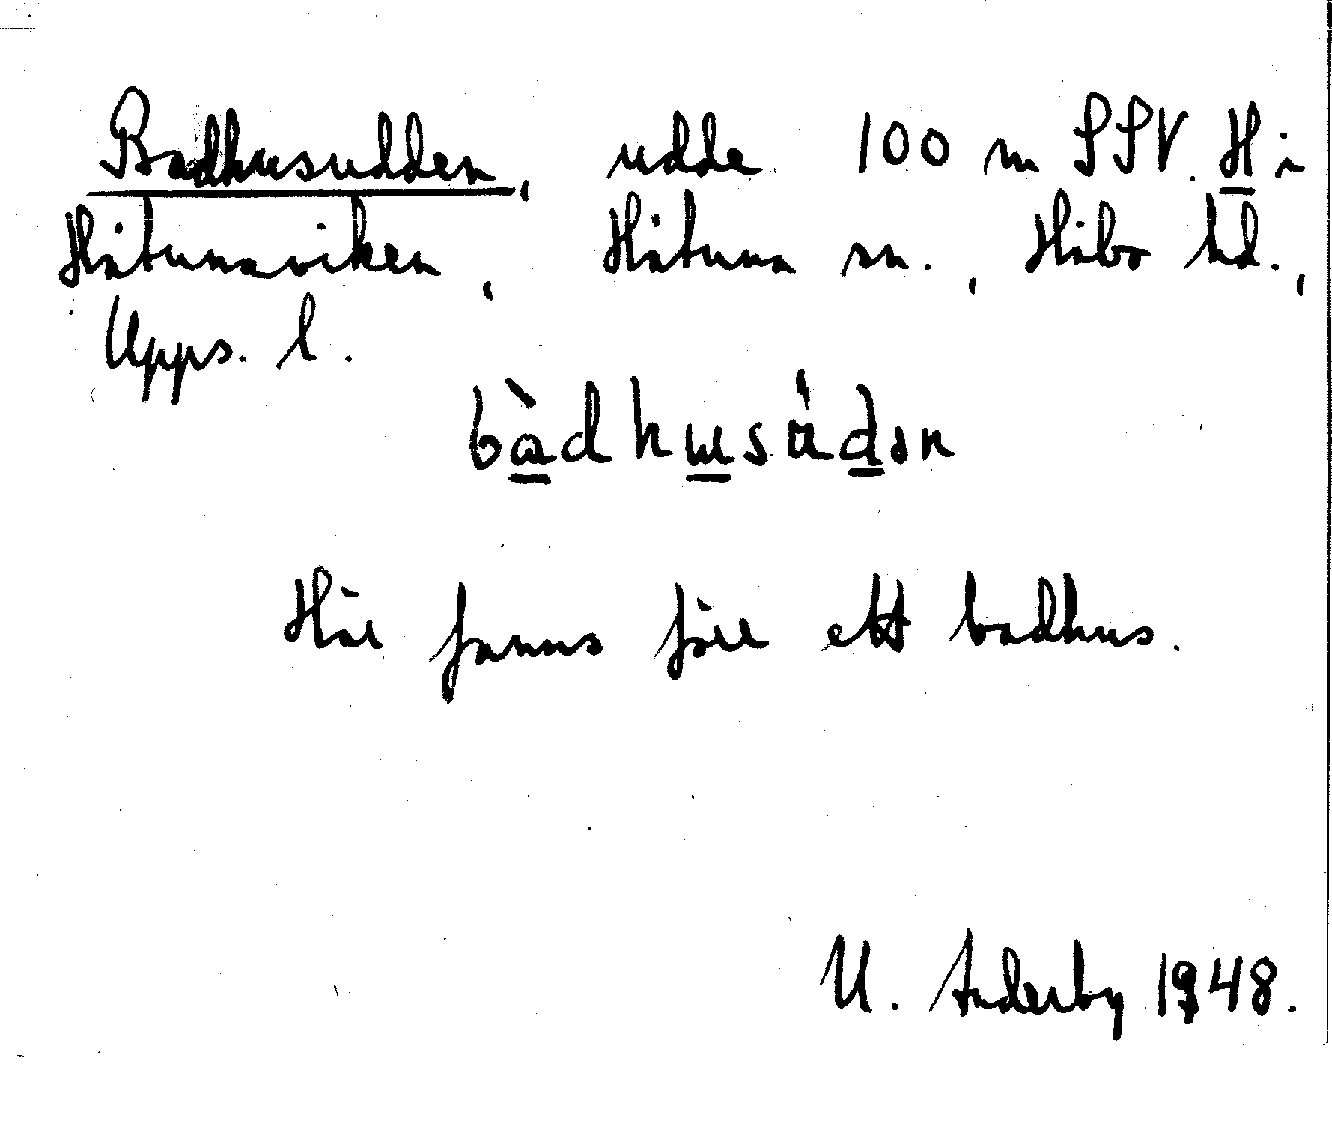 Badhusudden, udde 100 m SSV. H i
Håtunaviken, Håtuna sn., Håbo hd.,
Upps. l.
Här fanns förr ett badhus.
U. Anderby 1948.